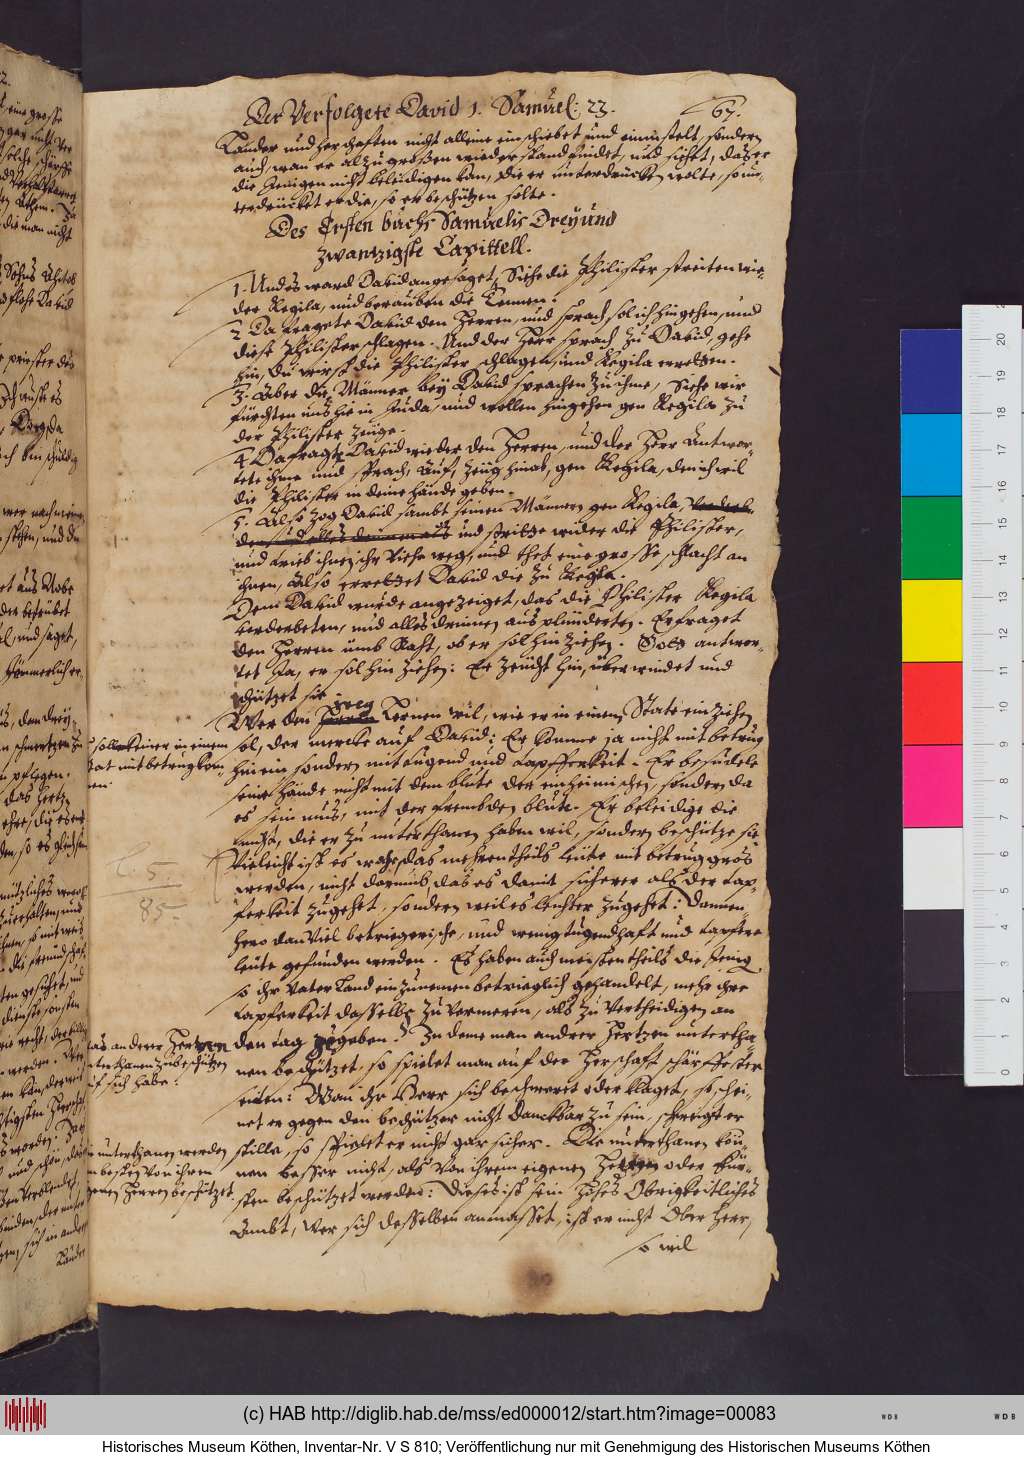 Der Verfolgete David 1. Samuel: 23.
67.
Länder und herschaften nicht alleine einschiebet und einmistelt, sondern
auch, wan er alzu großen wiederstand findet, und siehet, das er
die Jenigen nicht beleidigen kan, die er unterdrücken wolte, so un-
terdrücket er die, so er beschützen solte.
Des Ersten buchs Samuelis Drey und
zwantzigste Capittell.
1. Und es ward David angesaget, Siehe die Philister streiten wie-
der Kegila, und berauben die Tennen.
2. Da fragete David den Herren, und sprach, sol ich hingehen, und
diese Philister schlagen. Und der Herr sprach zu David, gehe
hin, du wirst die Philister schlagen, und Kegila erretten.
3. Aber die Männer bey David sprachen zu ihme, Siehe wir
fürchten uns hie in Juda, und wollen hingehen gen Kegila zu
der Philister zeüge.
4. Da fragte David wieder den Herren, und der Herr Antwor-
tete ihme und sprach, Auf, zeüg hinab, gen Kegila, den ich wil
die Philister in deine hände geben.
5. Also zog David sambt seinen Männern gen Kegila,
und stritte wider die Philister,
und trieb ihnen ihr Viehe weg, und thet eine grosse schlacht an
ihnen, Also errettet David die zu Kegila.
Dem David wurde angezeiget, das die Philister Kegila
verderbeten, und alles drinnen ausplünderten. Er fraget
den Herren umb Raht, ob er sol hin ziehen. Gott antwor-
tet Ja, er sol hin ziehen: Er zeucht hin, überwindet und
schützet sie
Wer den weg lernen wil, wie er in einen Stat einziehen
sol, der mercke auf David: Er komme ja nicht mit betrug
hinein sondern mit tugend und tapfferkeit. Er besudele
seine hände nicht mit dem blute der einheimischen, sondern da
es sein mus, mit der frembden blute. Er beleidige die
nicht, die er zu unterthanen haben wil, sondern beschütze sie
Vieleicht ist es wahr, das mehrentheils leüte mit betrug gros
werden, nicht darumb, das es damit sicherer als der tap-
ferkeit zugehet, sondern weil es leichter zugehet: Dannen-
hero dan viel betriegerische, und wenig tugendhaft und tapfere
leüte gefunden werden. Es haben auch meistentheils die jenig
so ihr Vaterland einzunemen betrieglich gehandelt, mehr ihre
tapferkeit dasselbe zu vermeren, als zu vertheidigen an
den tag gegeben. In deme man andrer Herren untertha-
nen beschützet, so spielet man auf der Herschaft schärffester
seiten: Wan ihr Herr sich beschweret oder klaget, so schei-
net er gegen den beschützer nicht danckbar zu sein, schweigt er
stille, so spielet er nicht gar sicher. Die unterthanen kön-
nen besser nicht, als von ihrem eigenen Herren oder Für-
sten beschützet werden: Dieses ist sein hohes Obrigkeitliches
Ambt, wer sich desselben anmasset, ist er nicht Ober Herr,
so wil
sol keiner in einen
Stat mit betrug kom-
men.
25
85.
das anderer Herren
unterthanen zubeschützen
auf sich habe.
die unterthanen werden
am besten von ihrem
eigenen Herren beschützet.
(c) HAB http://diglib.hab.de/mss/ed000012/start.htm?image=00083
WDB
WDB
Historisches Museum Köthen, Inventar-Nr. V S 810; Veröffentlichung nur mit Genehmigung des Historischen Museums Köthen